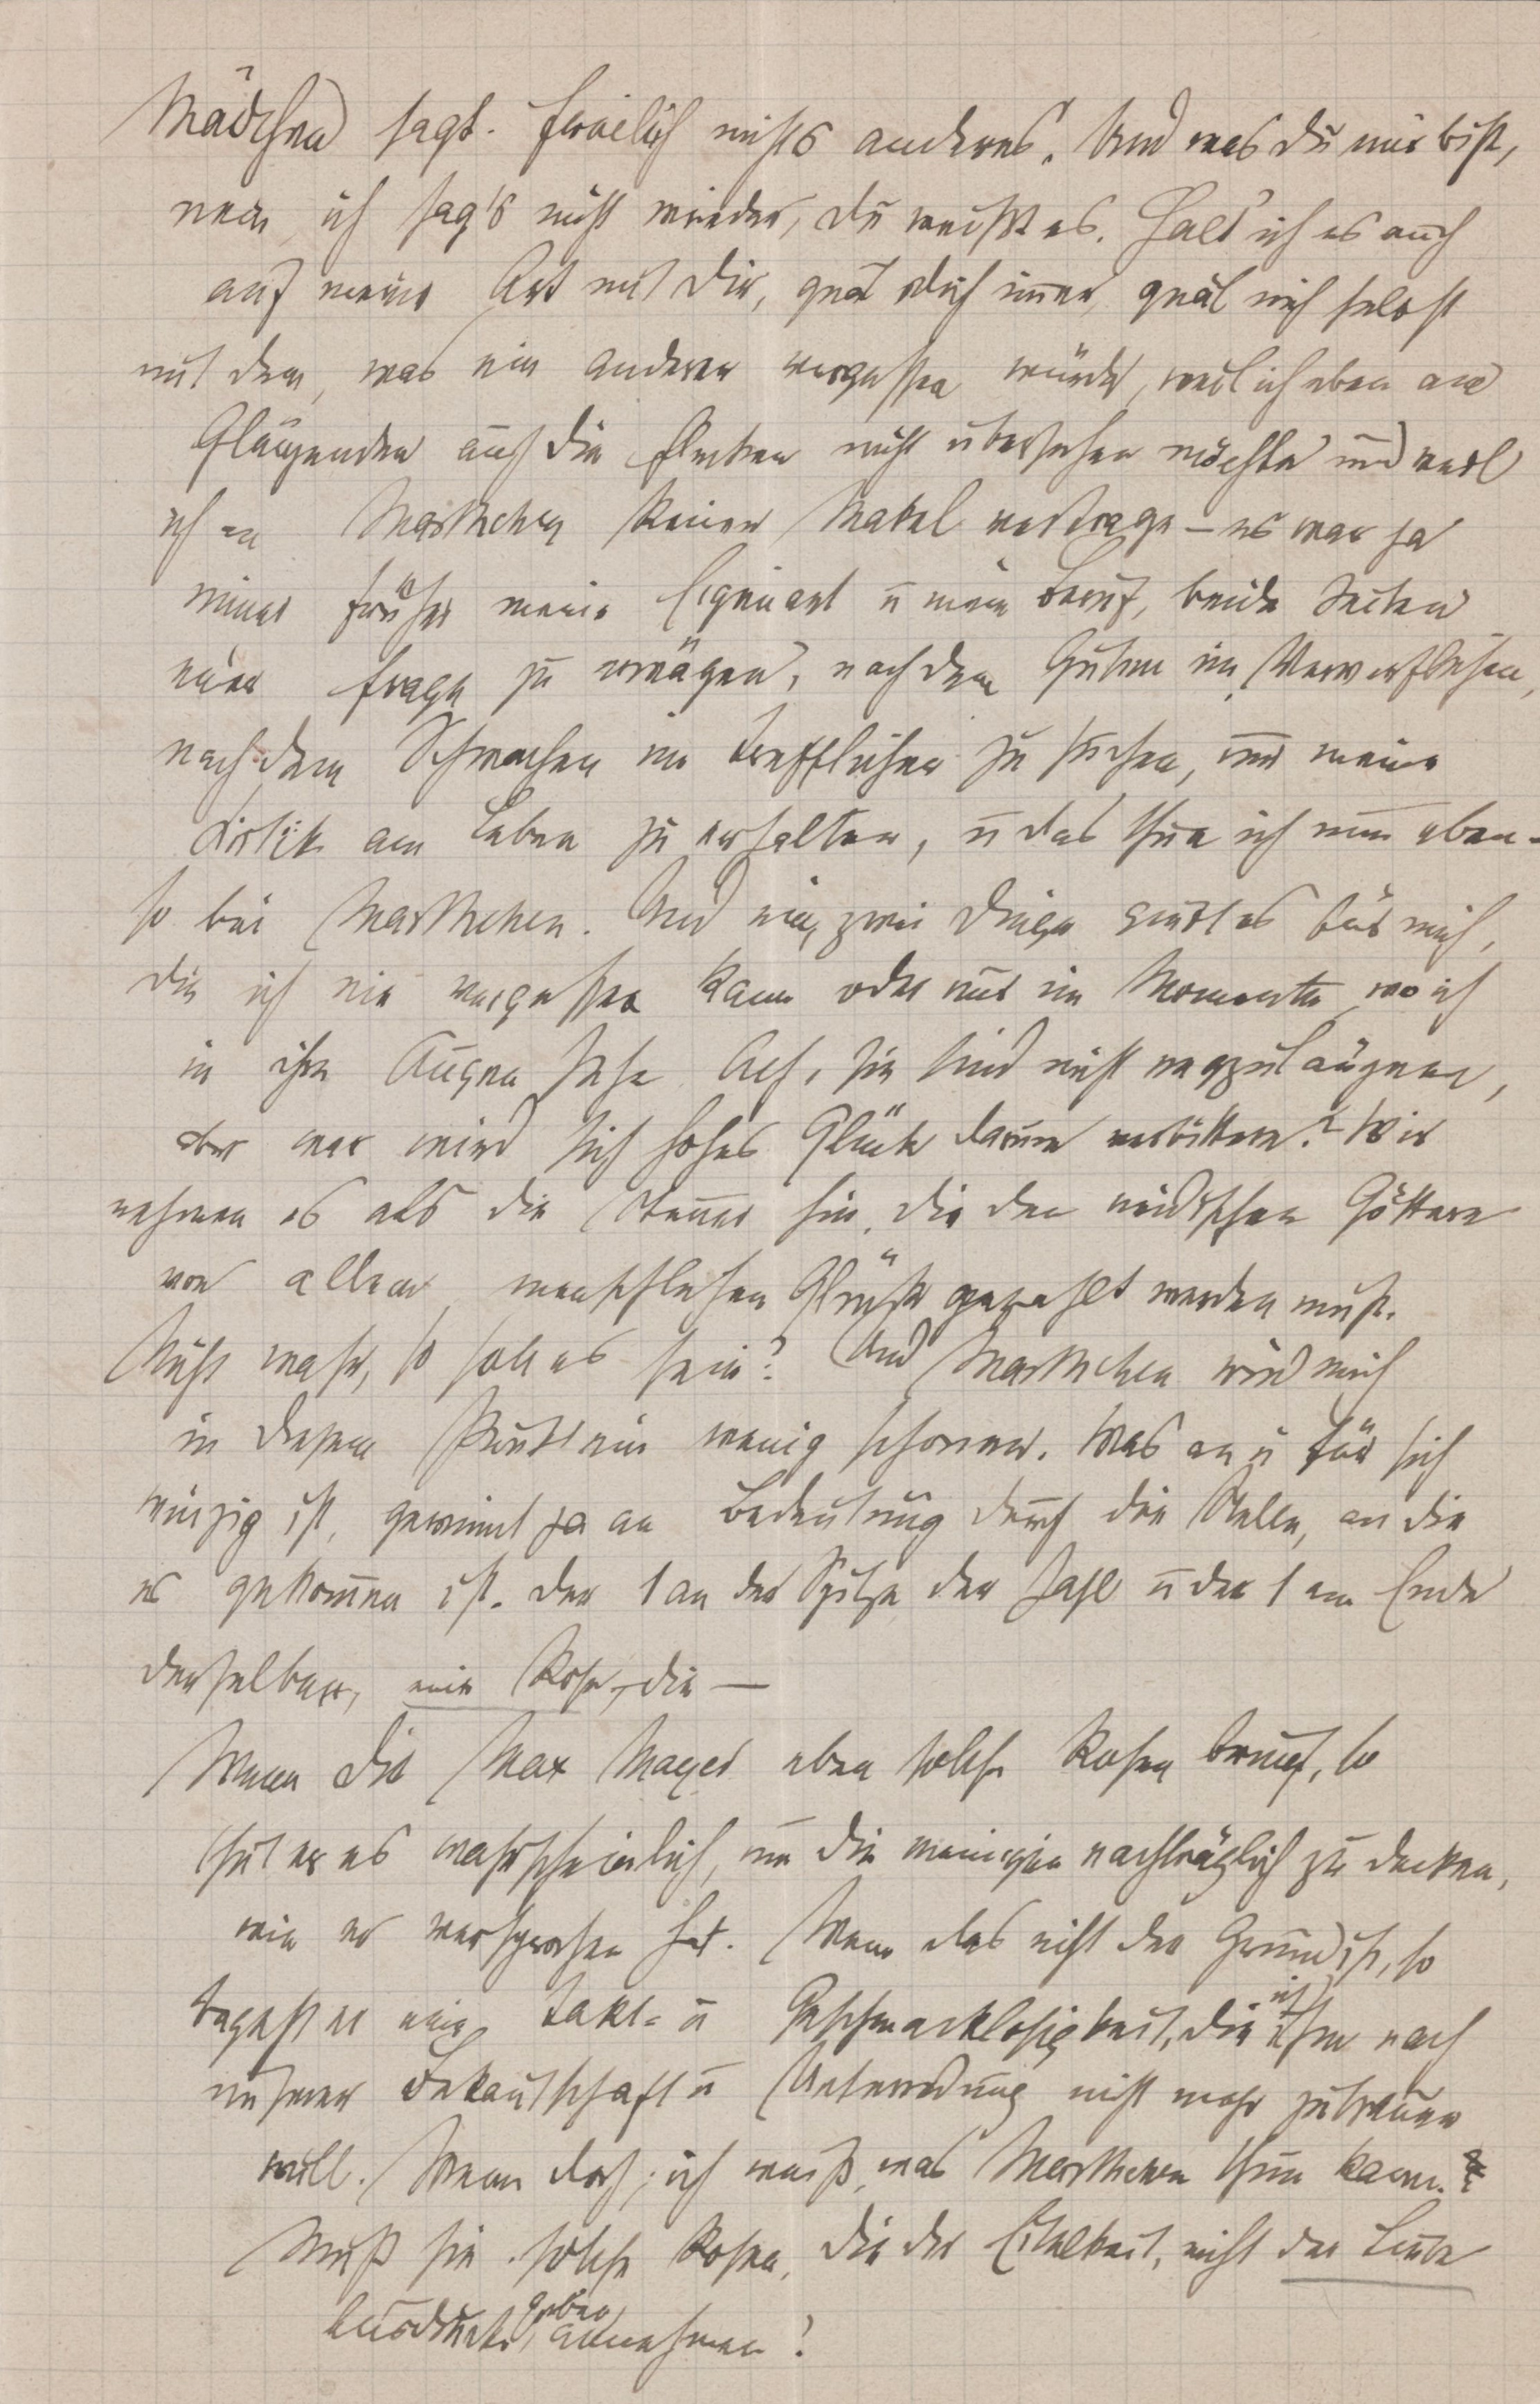 Mädchen sagt. Freilich nichts anderes. Und was Du mir bist,
nein, ich sag's nicht wieder, Du weißt es. Halt' ich es auch
auf meine Art mit Dir, quäl Dich immer, quäl mich selbst
mit dem, was ein anderer vergessen würde, weil ich eben am
Glänzenden auch die Flecken nicht übersehen möchte und weil
ich an Marthchen keinen Makel vertrage – es war ja
immer früher meine Eigenart u mein Beruf, beide Seiten
einer Frage zu erwägen, nach dem Guten im Verwerflichen,
nach dem Schwachen im Trefflichen zu suchen, um meine
Kritik am Leben zu erhalten, u das thue ich nun eben-
so bei Marthchen. Und nein, zwei Dinge giebt es für mich,
die ich nie vergessen kann oder nur im Momente, wo ich
in ihre Augen sehe. Ach, sie sind nicht wegzuläugnen,
aber wer wird sich hohes Glück darum verbittern? Wir
nehmen es als die Steuer hin, die den neidischen Göttern
von allem menschlichen Glück gezahlt werden muß.
Nicht wahr, so soll es sein? Und Marthchen wird mich
in diesem Punkt ein wenig schonen. Was an u für sich
winzig ist, gewinnt ja an Bedeutung durch die Stelle, an die
es gekommen ist. Der 1 an der Spitze der Zahl u der 1 am Ende
derselben, eine Rose, die —
Wenn Dir Max Mayer eben solche Rosen bringt, so
thut er es wahrscheinlich, um die meinigen nachträglich zu decken,
wie er versprochen hat. Wenn das nicht der Grund ist, so
begeht er eine Takt- u Geschmacklosigkeit, die ich ihm nach
unserer Bekantschaft u Unterredung nicht mehr zutrauen
will. Wenn doch, ich weiß, was Marthchen thun kann.
Muß sie solche Rosen, die der Eitelkeit, nicht der Liebe
Ausdruck geben, annehmen?